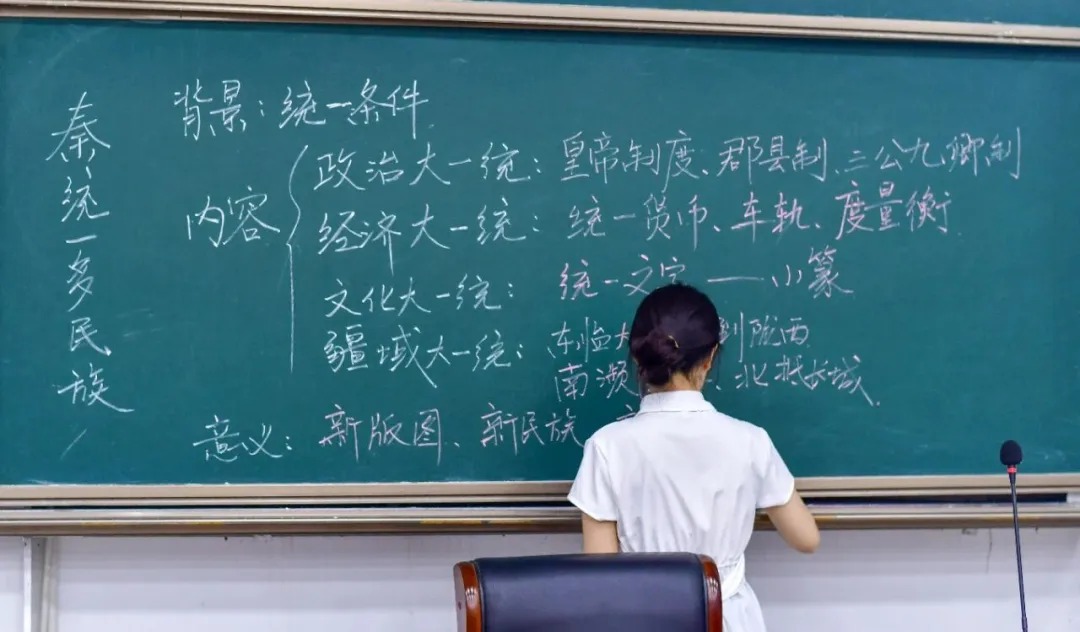 秦统一多民族
背景：统一条件
内容
政治大一统：皇帝制度、郡县制、三公九卿制
经济大一统：统一货币、车轨、度量衡
文化大一统：统一文字——小篆
疆域大一统：东临大 到陇西
南濒 、北抵长城
意义：新版图、新民族